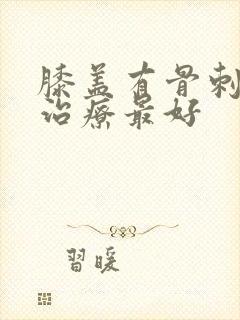 膝盖有骨刺
治疗最好
習暖